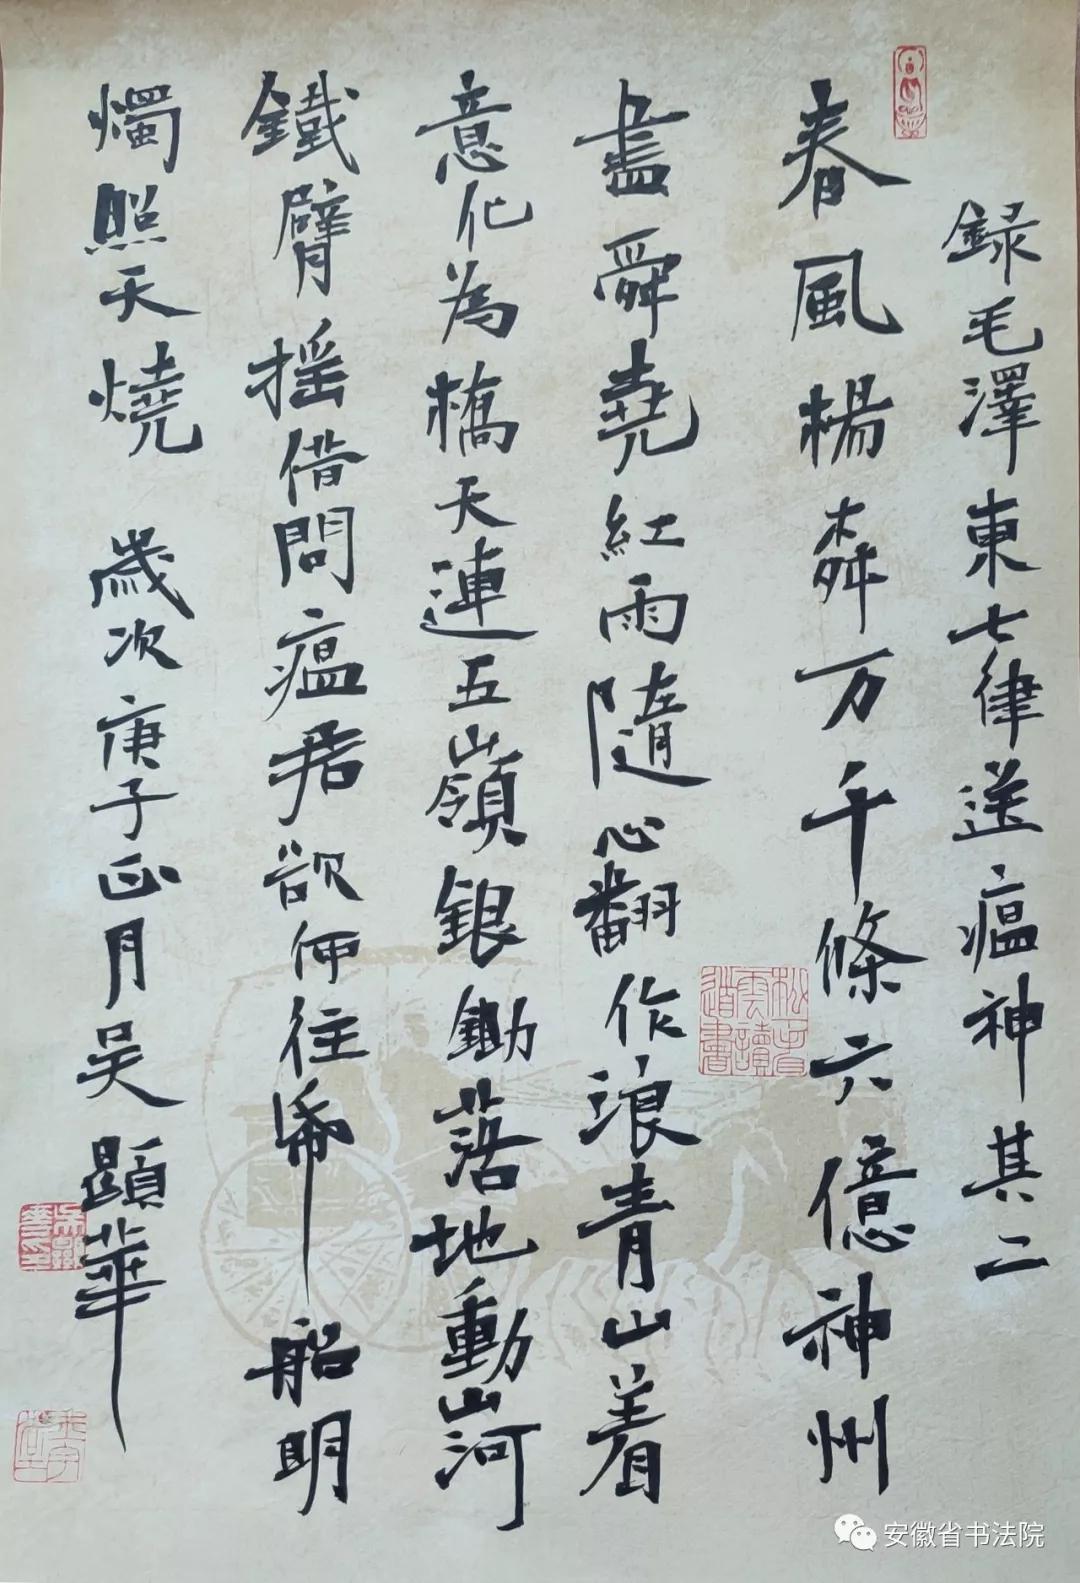 録毛澤東七律送瘟神其二
春風楊柳万千條六億神州
盡舜堯紅雨隨心翻作浪青山着
意化為橋天連五嶺銀鋤落地動山河
鐵臂摇借問瘟君欲何往帋船明
燭照天燒 歲次庚子正月吳顕華
安徽省书法院